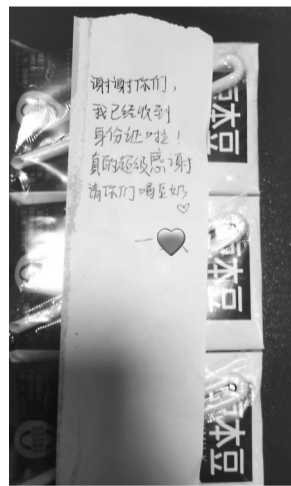 谢谢你们，
我已经收到
身份证啦！
真的超级感谢
请你们喝豆奶
本豆
本豆
本豆